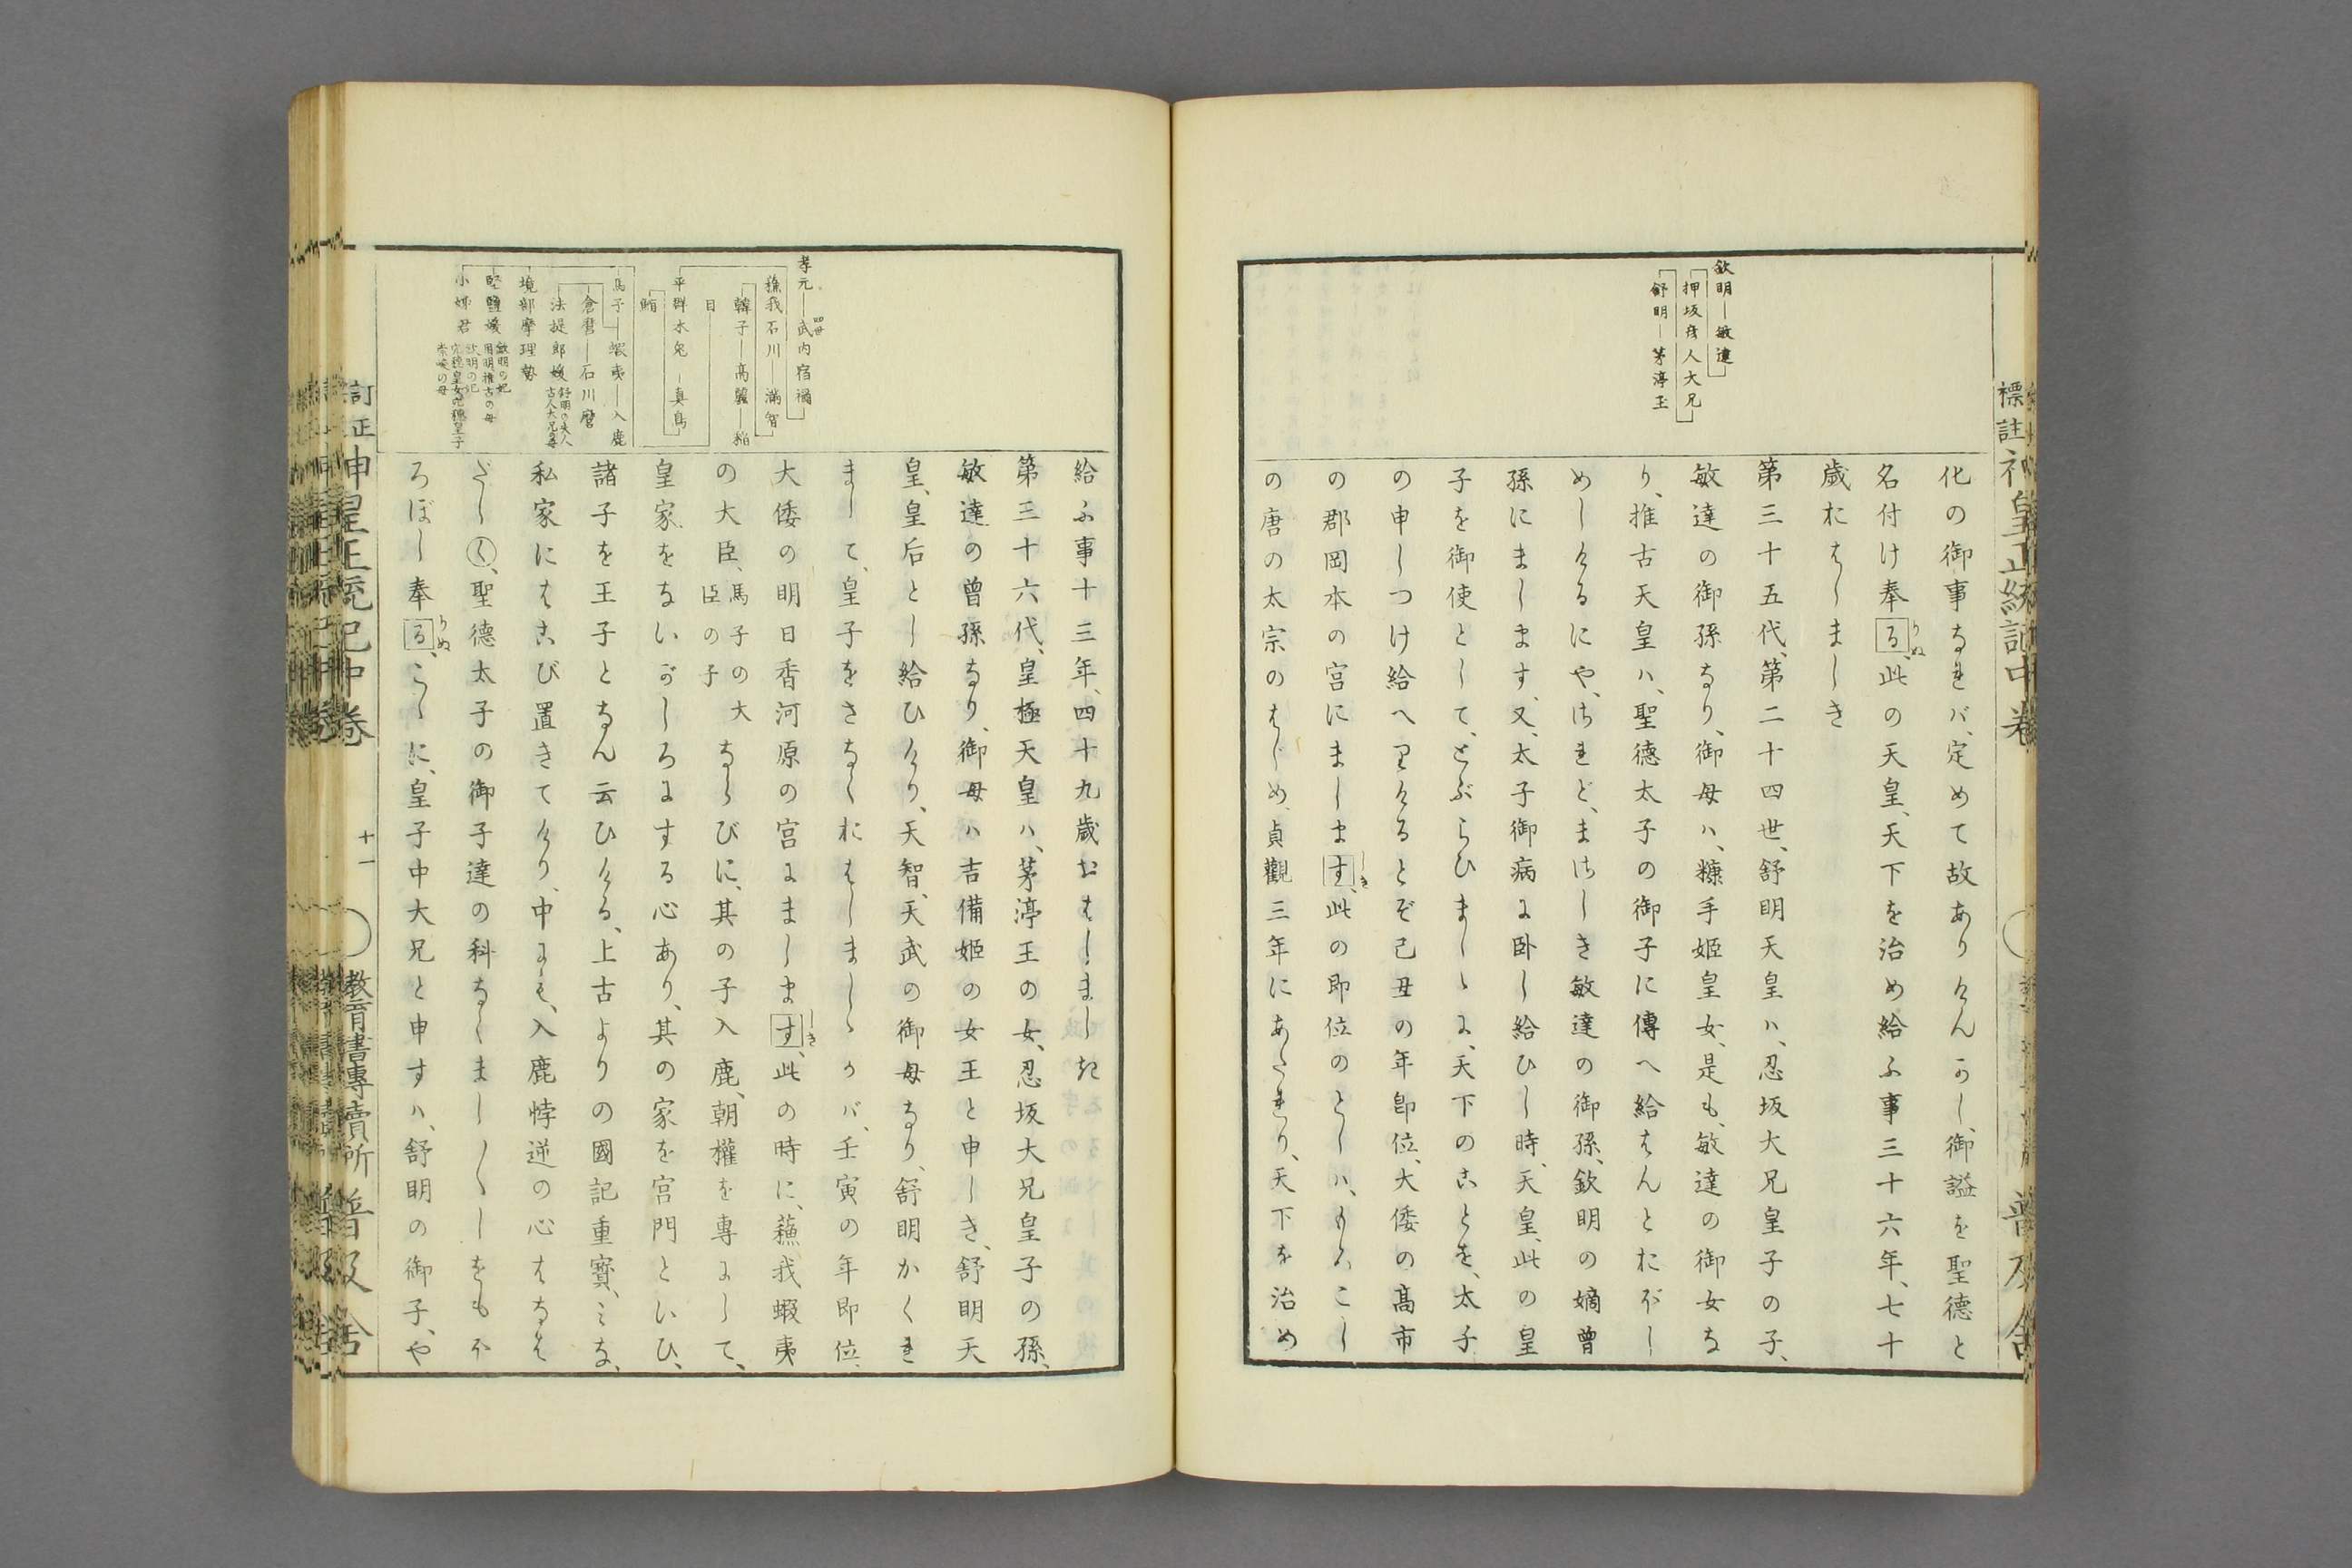 標註
神皇正統記中卷
普及舍
欽明―敏達
押坂彦人大兄
舒明―茅渟王
化の御事なれバ、定めて故ありけんかし、御謚を聖德と
名付け奉る、此の天皇、天下を治め給ふ事三十六年、七十
りぬ
歲おはしましき
第三十五代、第二十四世、舒明天皇ハ、忍坂大兄皇子の子、
敏達の御孫なり、御母ハ、糠手姬皇女、是も、敏達の御女な
り、推古天皇ハ、聖德太子の御子に傳へ給はんとおぼし
めしけるにや、されど、まさしき敏達の御孫、欽明の嫡曾
孫にまします、又、太子御病に卧し給ひし時、天皇、此の皇
子を御使として、とぶらひましゝに、天下のことを、太子
の申しつけ給へりけるとぞ己丑の年卽位、大倭の髙市
の郡岡本の宮にまします、此の即位のとしハ、もろこし
しき
の唐の太宗のはじめ、貞觀三年にあたれり、天下を治め
孝元―武内宿禰
四世
蘇我石川―滿智
韓子―高麗―稻
目
平群木兔―真鳥
鮪
馬子―蝦夷―入鹿
倉麿―石川麿
法提郎媛
舒明の夫人
古人大兄の母
境部摩理勢
堅鹽媛
欽明の妃
用明推古の母
小姉君
欽明の妃
崇峻の母
給ふ事十三年、四十九歲おはしましき
第三十六代、皇極天皇ハ、茅渟王の女、忍坂大兄皇子の孫、
敏達の曾孫なり、御母ハ吉備姬の女王と申しき、舒明天
皇、皇后とし給ひけり、天智、天武の御母なり、舒明かくれ
まして、皇子をさなくおはしましゝかバ、壬寅の年即位、
大倭の明日香河原の宮にまします、此の時に、蘓我、蝦夷
しき
の大臣、馬子の大臣の子ならびに、其の子入鹿、朝權を專にして、
皇家をないがしろにする心あり、其の家を宮門といひ、
諸子を王子となん云ひける、上古よりの國記重寶、ミな、
私家にはこび置きてけり、中にも、入鹿悖逆の心はなは
だしく、聖德太子の御子達の科なくましゝしをもホ
ろぼし奉る、こゝに、皇子中大兄と申すハ、舒明の御子、や
りぬ
訂正
神皇正統記中卷
十一
教育書專賣所
普及舍